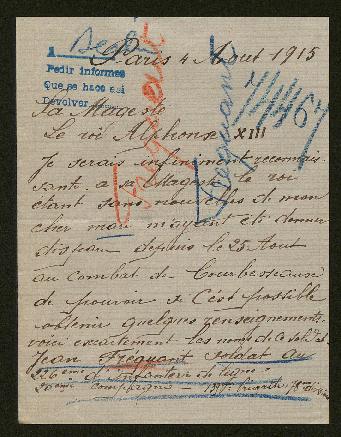 1
Pedir informes
Que se hace así
Devolver
Paris 4 Aout 1915
Sa Magesté
Le roi Alphonse XIII
Je serais infiniment reconnais
sante a sa Magesté le roi
étant sans nouvelles de mon
cher mari m'ayant été donner
disparu depuis le 25 Aout
au combat de Courbesseaux
de pouvoir si c'est possible
obtenir quelques renseignements
voici exactement les noms de ce soldat
Jean Fréquant soldat au
226eme d'infanterie de ligne
20eme Compagnie